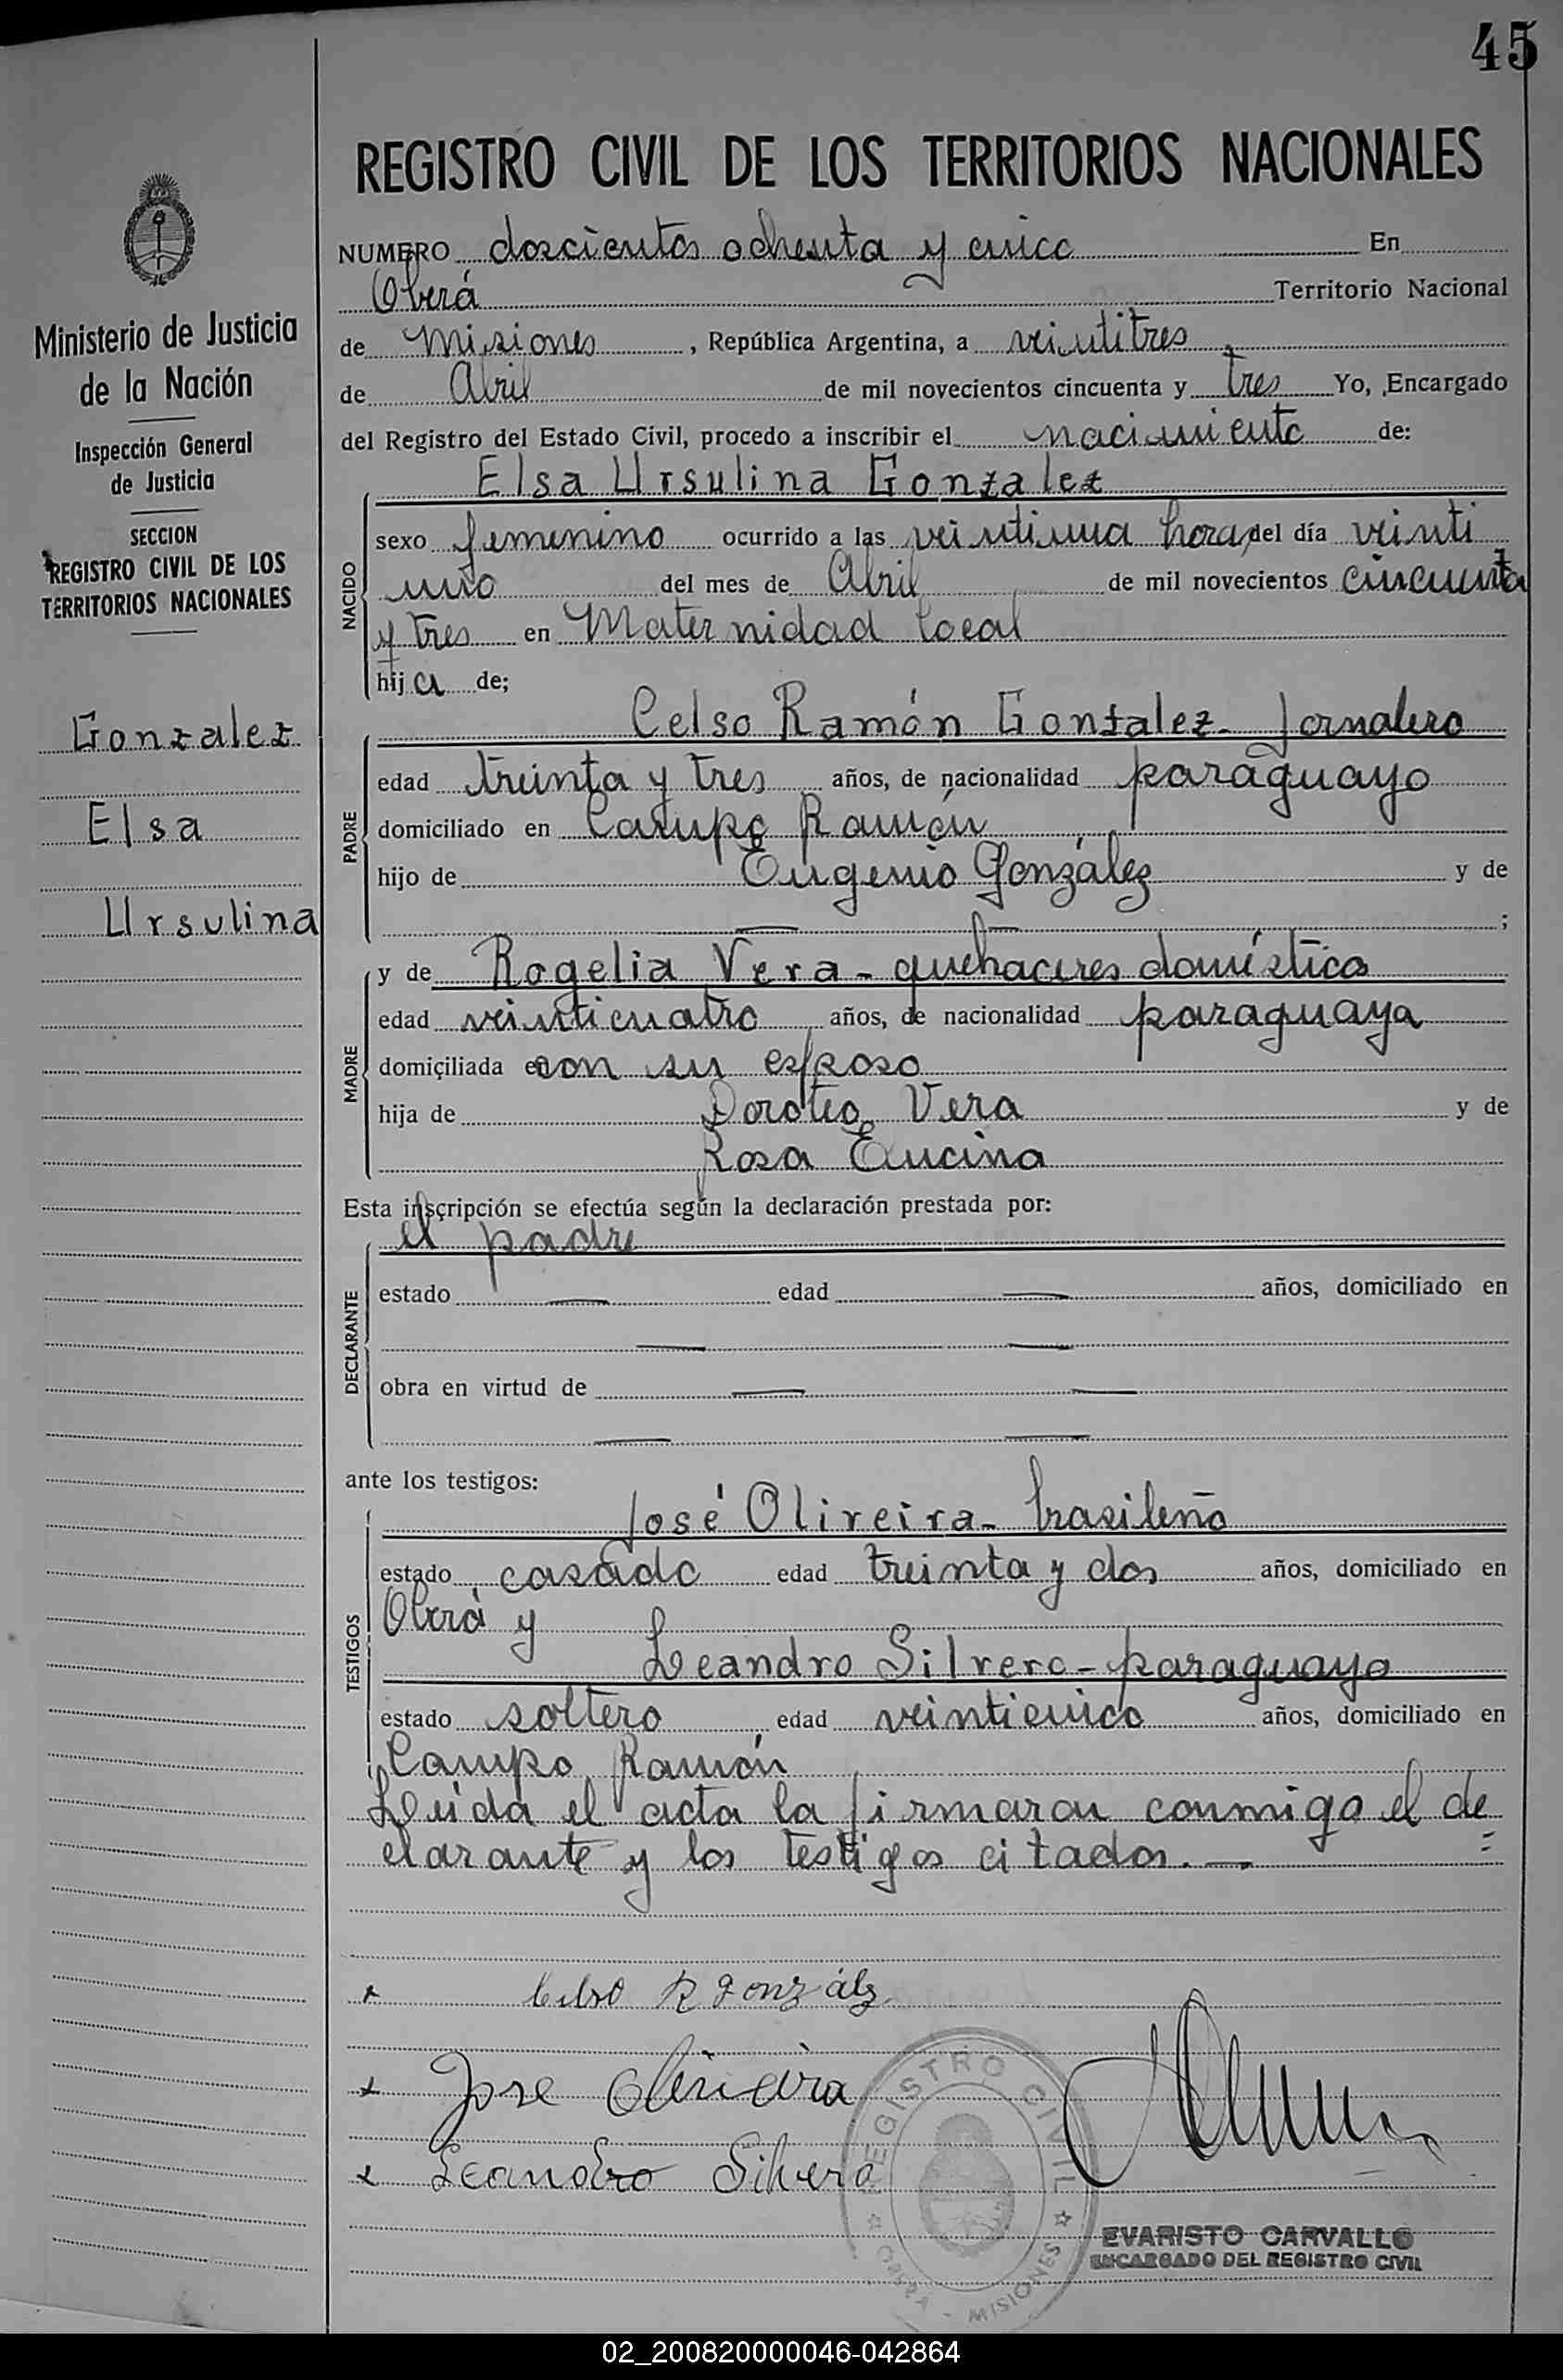 45
REGISTRO CIVIL DE LOS TERRITORIOS NACIONALES
Ministerio de Justicia
de la Nación
Inspección General
de Justicia
SECCION
REGISTRO CIVIL DE LOS
TERRITORIOS NACIONALES
Gonzalez
Elsa
Ursulina
NUMERO doscientos ochenta y cinco En
Oberá Territorio Nacional
de Misiones, República Argentina, a veintitres
de Abril de mil novecientos cincuenta y tres Yo, Encargado
del Registro del Estado Civil, procedo a inscribir el nacimiento de:
Elsa Ursulina Gonzalez
NACIDO
sexo femenino ocurrido a las veintiuna horas del día veinti
uno del mes de Abril de mil novecientos cincuenta
y tres en Maternidad local
hija de;
PADRE
Celso Ramón Gonzalez - Jornalero
edad treinta y tres años, de nacionalidad paraguayo
domiciliado en Campo Ramón
hijo de Eugenio González y de
— — ;
MADRE
y de Rogelia Vera - quehaceres domésticos
edad veinticuatro años, de nacionalidad paraguaya
domiciliada con su esposo
hija de Doroteo Vera y de
Rosa Encina
Esta inscripción se efectúa según la declaración prestada por:
DECLARANTE
el padre
estado — edad — años, domiciliado en
— —
obra en virtud de — —
— —
ante los testigos:
TESTIGOS
José Oliveira - brasileño
estado casado edad treinta y dos años, domiciliado en
Oberá y
Leandro Silvero - paraguayo
estado soltero edad veinticinco años, domiciliado en
Campo Ramón
Leída el acta la firmaron conmigo el de
clarante y los testigos citados. —
Celso R González
Jose Oliveira
Leandro Silvero
REGISTRO CIVIL
OBERA - MISIONES
EVARISTO CARVALLO
ENCARGADO DEL REGISTRO CIVIL
02_200820000046-042864